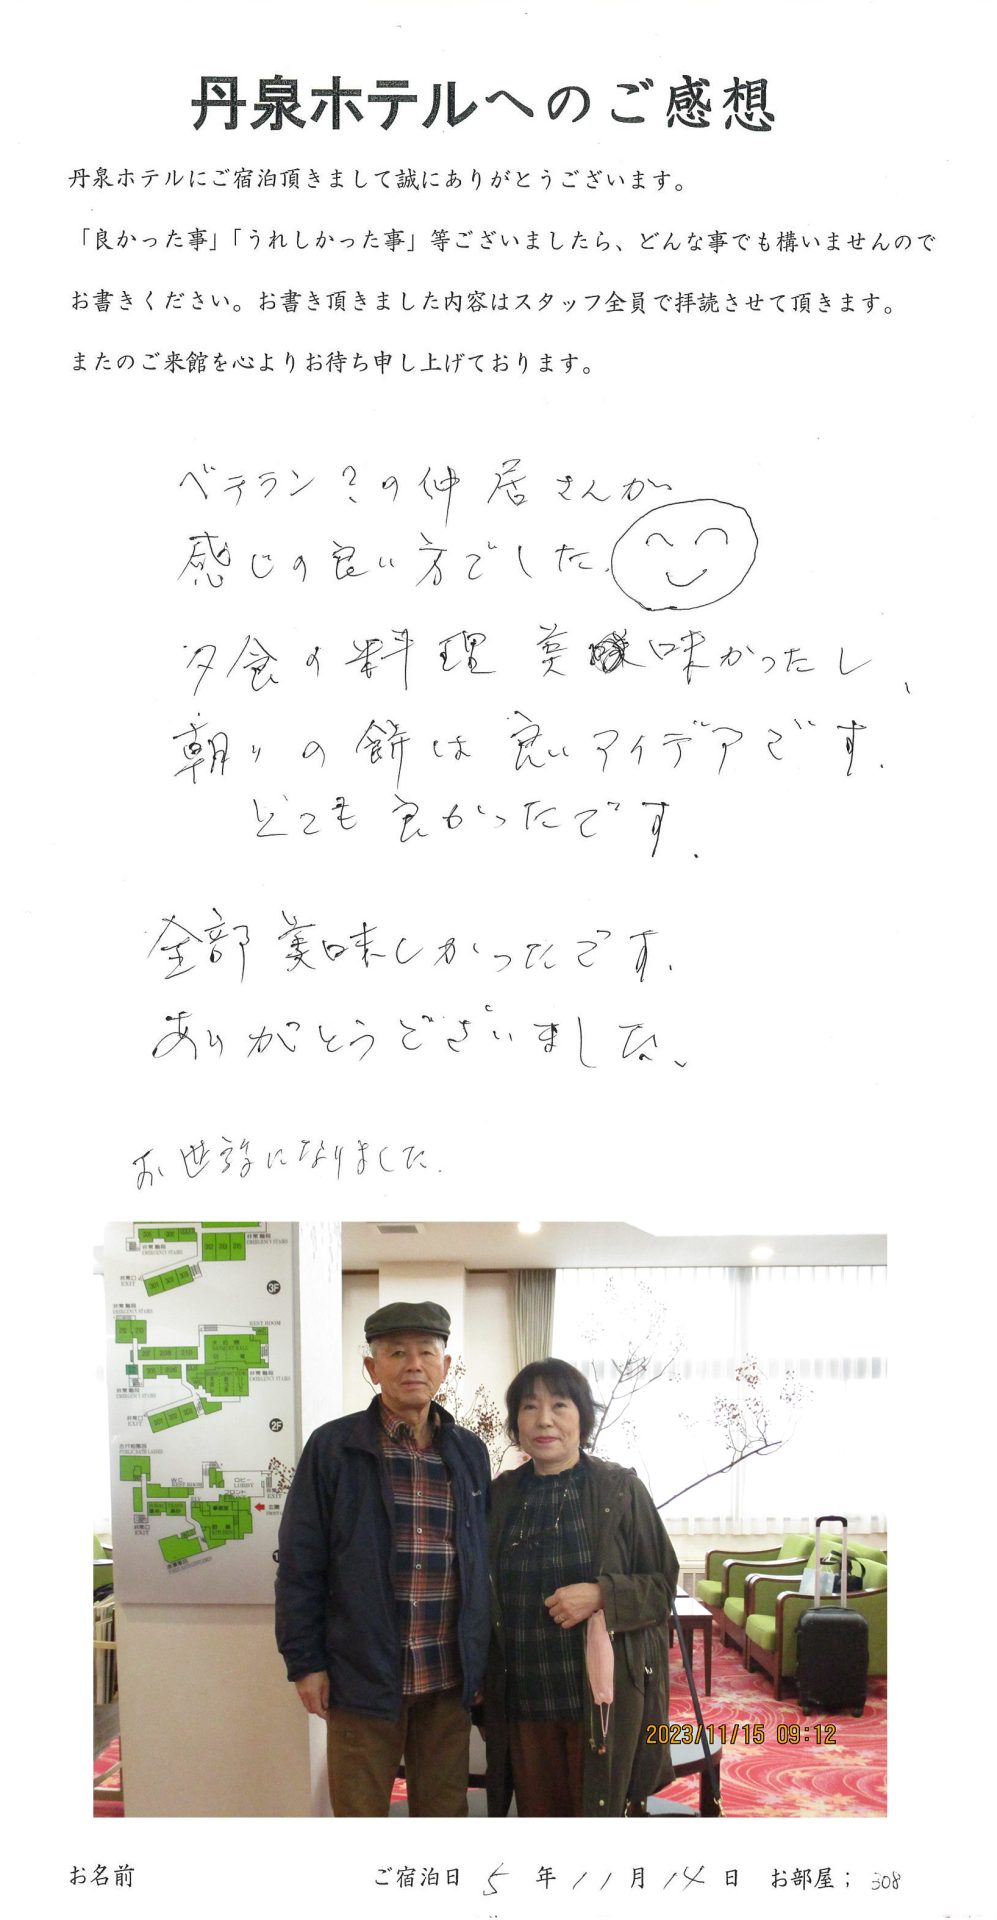 丹泉ホテルへのご感想
丹泉ホテルにご宿泊頂きまして誠にありがとうございます。
「良かった事」「うれしかった事」等ございましたら、どんな事でも構いませんので
お書きください。お書き頂きました内容はスタッフ全員で拝読させて頂きます。
またのご来館を心よりお待ち申し上げております。
ベテラン?の仲居さんが
感じの良い方でした。
夕食の料理美味かったし、
朝りの餅は良いアイデアです.
とても良かったです.
全部美味しかったです.
ありがとうございました、
お世話になりました.
非常階段
EMERGENCY STAIRS
非常口
EXIT
3F
非常階段
REST ROOM
非常階段
非常口
2F
W.C
REST ROOM
ロビー
LOBBY
フロント
玄関
非常口
EXIT
2023/11/15 09:12
お名前 ご宿泊日 5 年 11 月 14 日 お部屋; 308